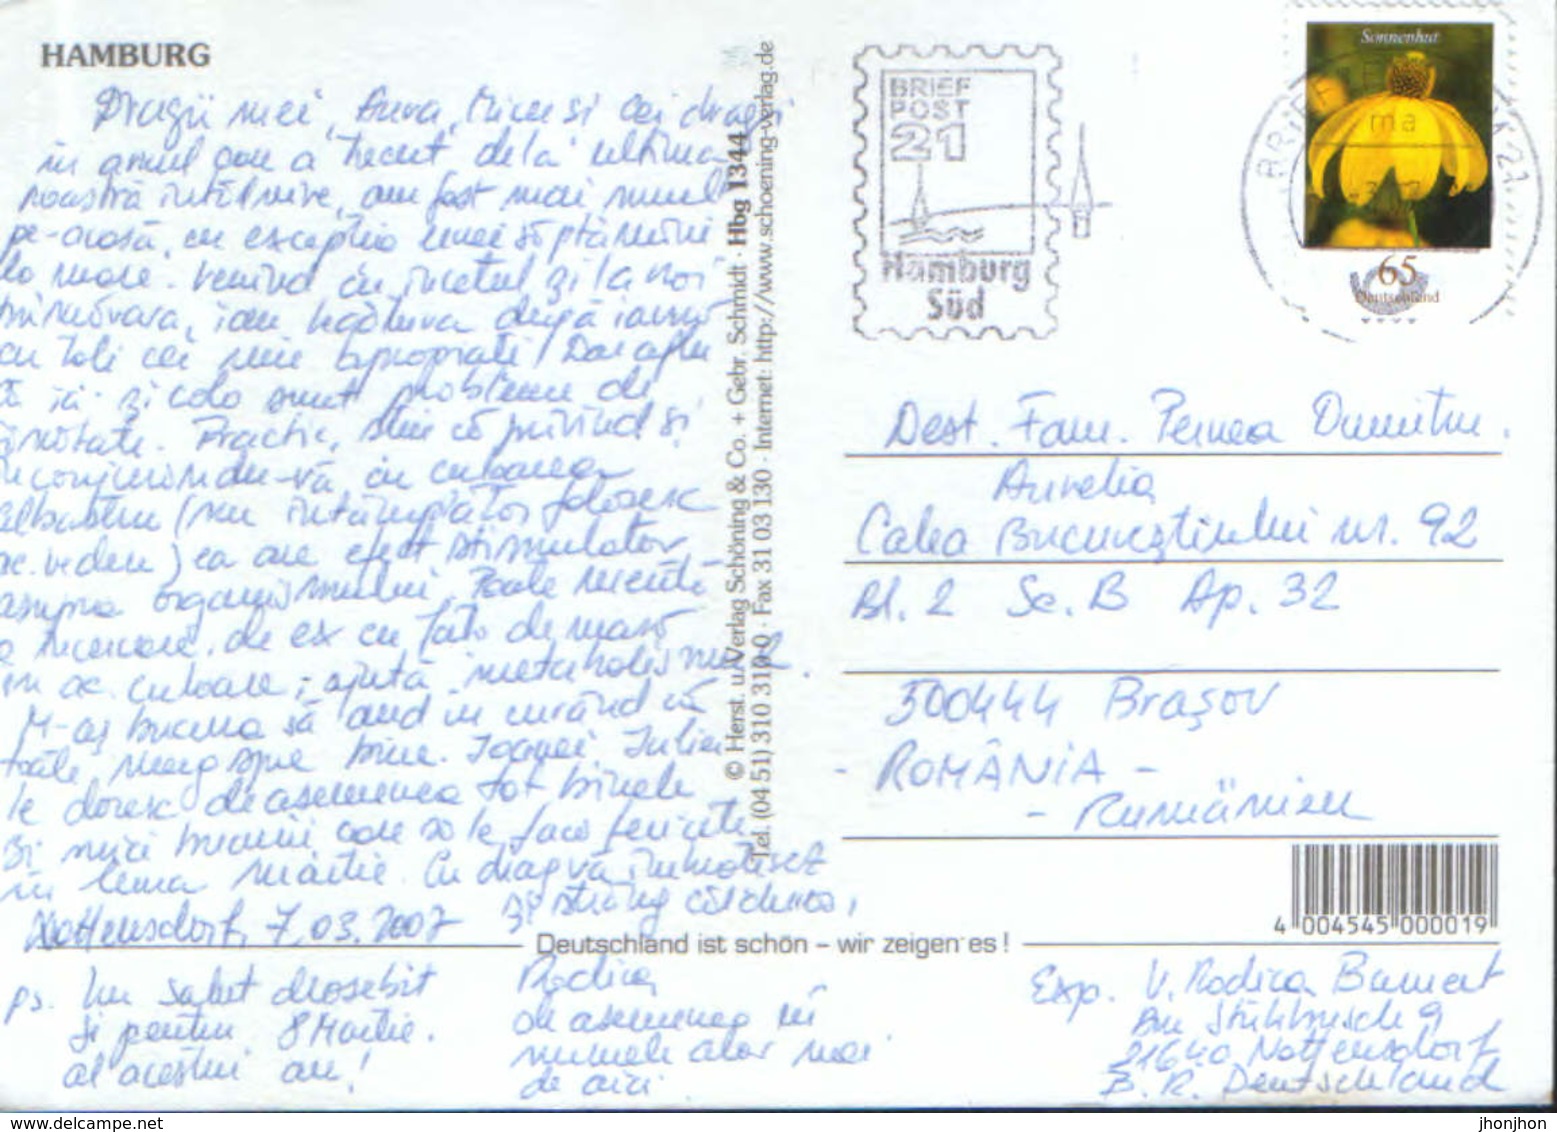 HAMBURG
Dragii mei, Aura, Micu si cei dragi
în anul care a trecut de la ultima
noastră întîlnire, am fost mai mult
pe-acasă, cu excepția unei săptămîni
la mare. Venind cu încetul și la noi
primăvara,
cu toți cei mie apropiați! Dar aflu
că ici și colo sunt probleme de
sănătate. Practic,
înconjurîndu-vă cu culoarea
albastru (nu întâmplător folosesc
ac. vedere) ea are efect stimulator
asupra organismului. Poate merită
o încercare, de ex cu față de masă
în ac. culoare; ajută metabolismul.
M-aș bucura să aud în curând că
toate merg spre bine. Ioanei Iuliei
le doresc deasemenea tot binele
și mici bucurii care să le facă fericite
în luna Martie. Cu drag vă îmbrățișez
Nottensdorf, 7.03.2007 și strâng călduros,
Deutschland ist schön – wir zeigen es !
ps. Un salut deosebit
și pentru 8 Martie.
al acestui an!
Rodica
de asemenea în
numele alor mei
de aici
© Herst. u. Verlag Schöning & Co. + Gebr. Schmidt · Hbg 1344
Tel. (04 51) 310 310-0 · Fax 31 03 130 · Internet: http://www.schoening-verlag.de
BRIEF
POST
21
Hamburg
Süd
Sonnenhut
65
Deutschland
ma
21
Dest. Fam. Pernea Dumitru.
Aurelia
Calea Bucureștiului nr. 92
Bl. 2 Sc. B Ap. 32
500444 Brașov
- ROMÂNIA -
- Rumänien
4 004545 000019
Exp. V. Rodica
21640 Nottensdorf,
B. R. Deutschland
jhonjhon